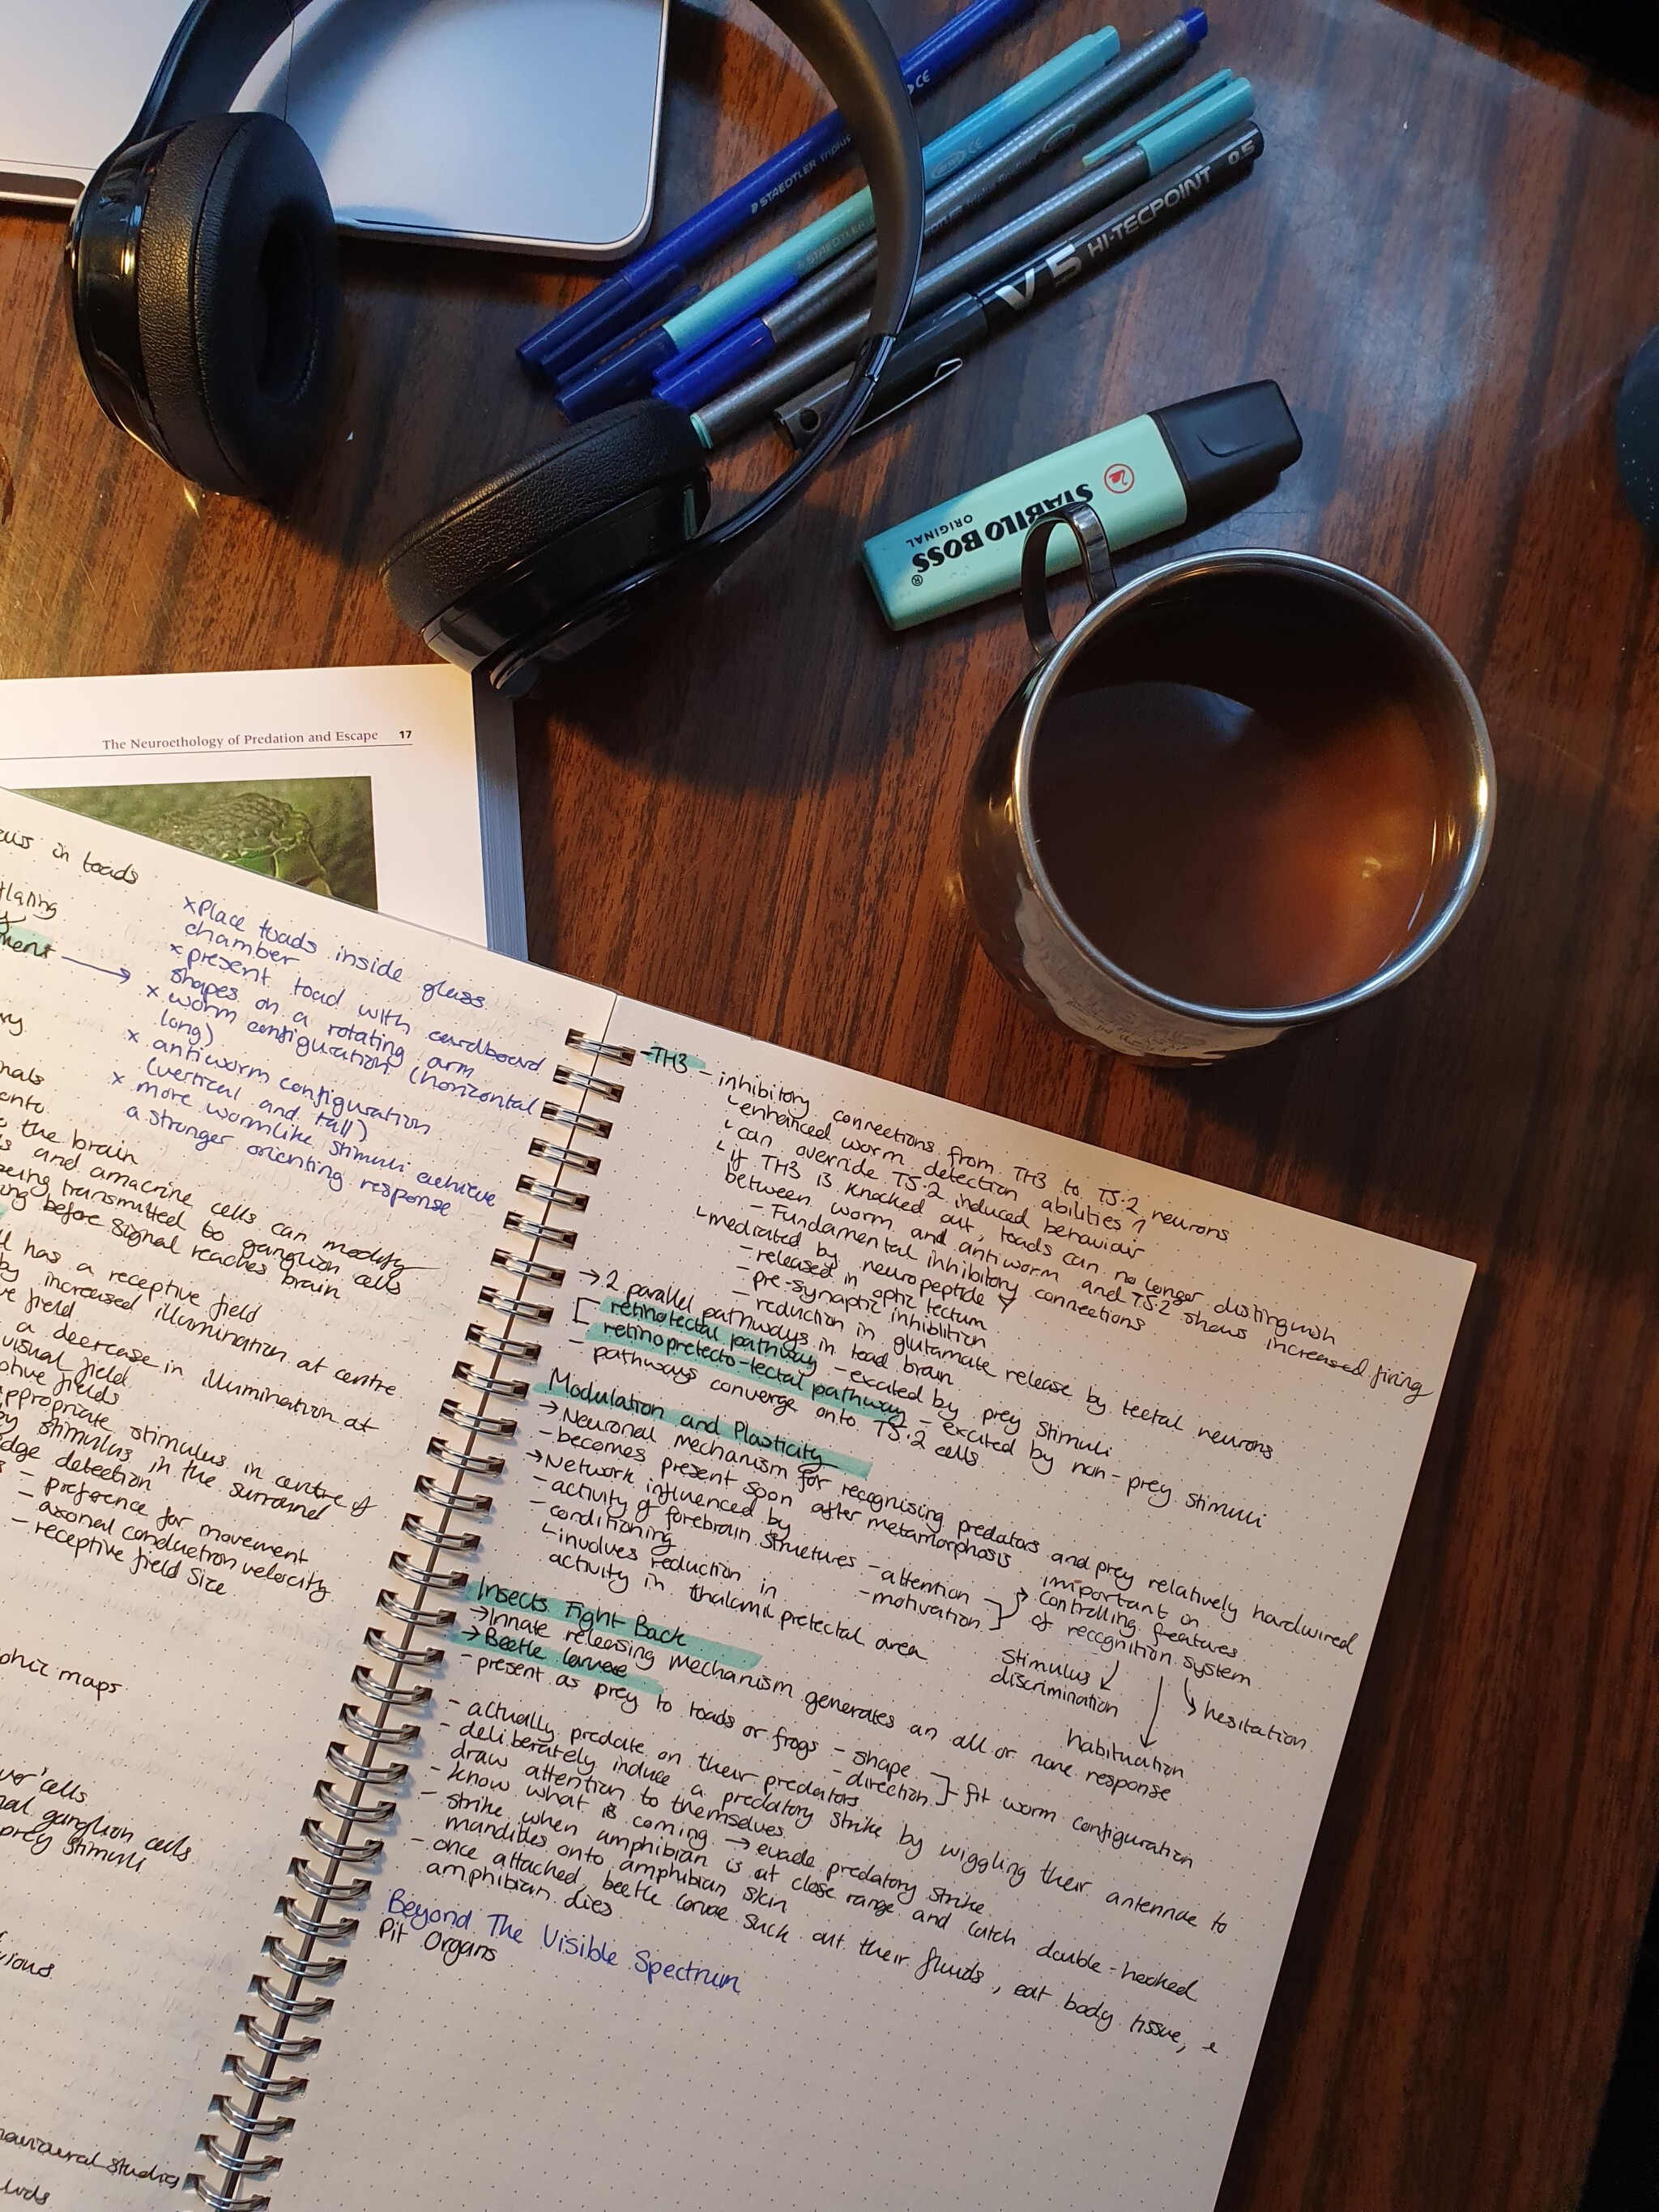 CE
STAEDTLER triplus
CE
STAEDTLER
V5 HI-TECPOINT 0.5
STABILO BOSS
ORIGINAL
®
The Neuroethology of Predation and Escape 17
in toads
x Place toads inside glass
chamber
x present toad with cardboard
shapes on a rotating arm
x worm configuration (horizontal
long)
x antiworm configuration
(vertical and tall)
x more wormlike stimuli achieve
a stronger orienting response
onto
the brain
and amacrine cells can modify
being transmitted to ganglion cells
before signal reaches brain
has a receptive field
by increased illumination at centre
field
a decrease in illumination at
visual field
fields
appropriate stimulus in centre of
by stimulus in the surround
edge detection
- preference for movement
- axonal conduction velocity
- receptive field size
maps
cells
ganglion cells
prey stimuli
studies
-TH3 - inhibitory connections from TH3 to T5.2 neurons
↳enhanced worm detection abilities
↳can override T5.2 induced behaviour
↳if TH3 is knocked out, toads can no longer distinguish
between worm and antiworm and T5.2 shows increased firing
- Fundamental inhibitory connections
↳mediated by neuropeptide Y
- released in optic tectum
- pre-synaptic inhibition
- reduction in glutamate release by tectal neurons
→ 2 parallel pathways in toad brain
retinotectal pathway - excited by prey stimuli
retinopretecto-tectal pathway - excited by non-prey stimuli
- pathways converge onto T5.2 cells
Modulation and Plasticity
→ Neuronal mechanism for recognising predators and prey relatively hardwired
- becomes present soon after metamorphosis
→ Network influenced by
- activity of forebrain structures - attention
- motivation
important in
controlling features
of recognition system
- conditioning
↳involves reduction in
activity in thalamic pretectal area
stimulus
discrimination
habituation
hesitation
Insects Fight Back
→ Innate releasing mechanism generates an all or none response
→ Beetle larvae
- present as prey to toads or frogs - shape
- direction
fit worm configuration
- actually predate on their predators
- deliberately induce a predatory strike by wiggling their antennae to
draw attention to themselves
- know what is coming → evade predatory strike
- strike when amphibian is at close range and latch double-hooked
mandibles onto amphibian skin
- once attached, beetle larvae suck out their fluids, eat body tissue, +
amphibian dies
Beyond The Visible Spectrum
Pit Organs